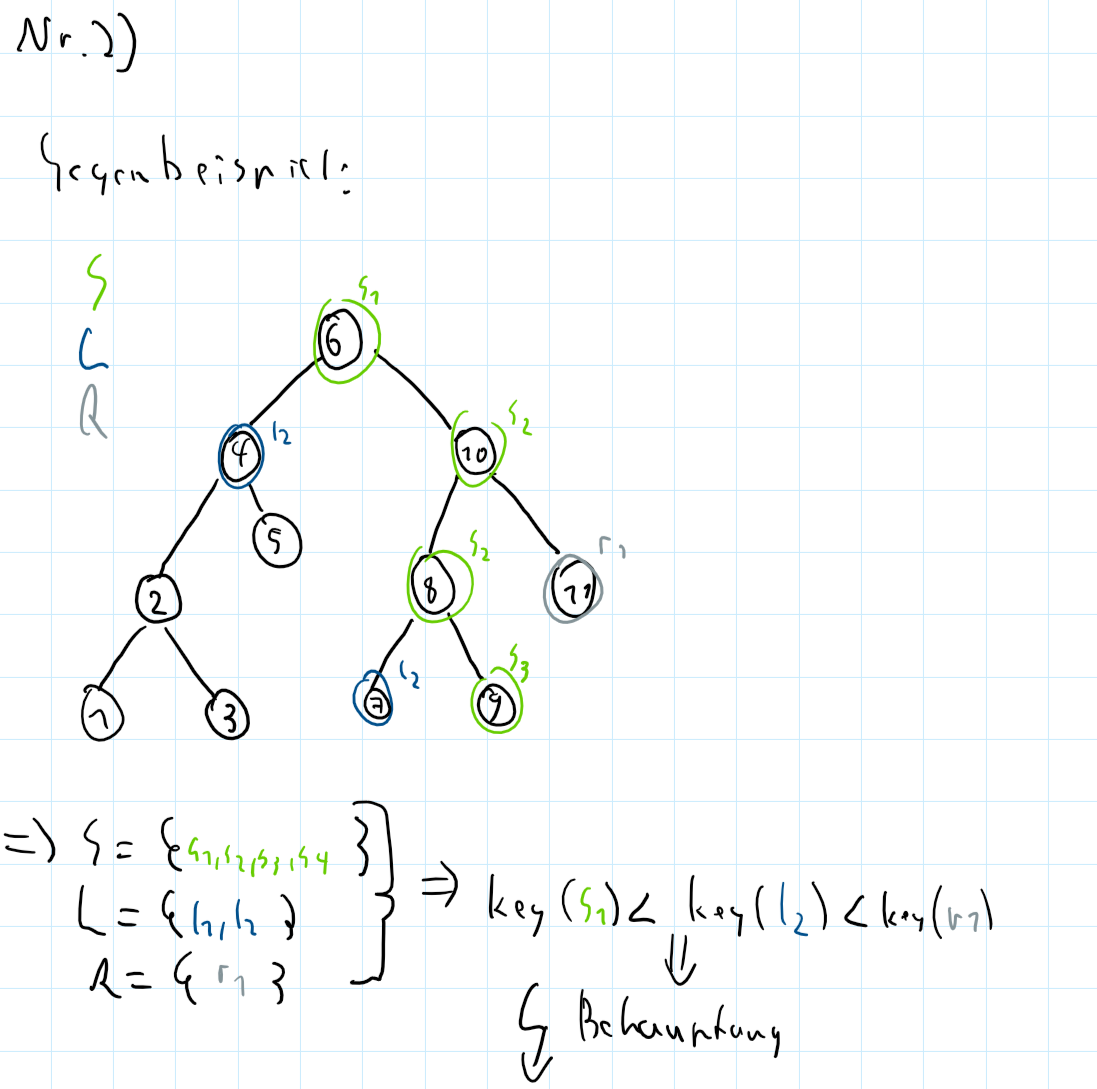 Nr. 2)
Gegenbeispiel:
S
L
R
s1
6
4 l2
10 s2
5
8 s2
11 r1
2
1
3
7 l2
9 s3
=> S = {s1, s2, s3, s4 }
L = {l1, l2 }
R = { r1 }
=> key (s1) < key (l2) < key (r1)
⇓
↯ Behauptung